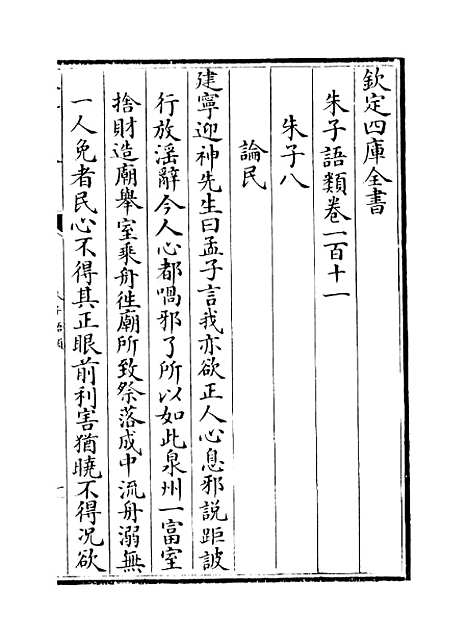 欽定四庫全書
朱子語類卷一百十一
朱子八
論民
建寧迎神先生曰孟子言我亦欲正人心息邪說距詖
行放淫辭今人心都喎邪了所以如此泉州一富室
捨財造廟舉室乘舟徃廟所致祭落成中流舟溺無
一人免者民心不得其正眼前利害猶曉不得况欲